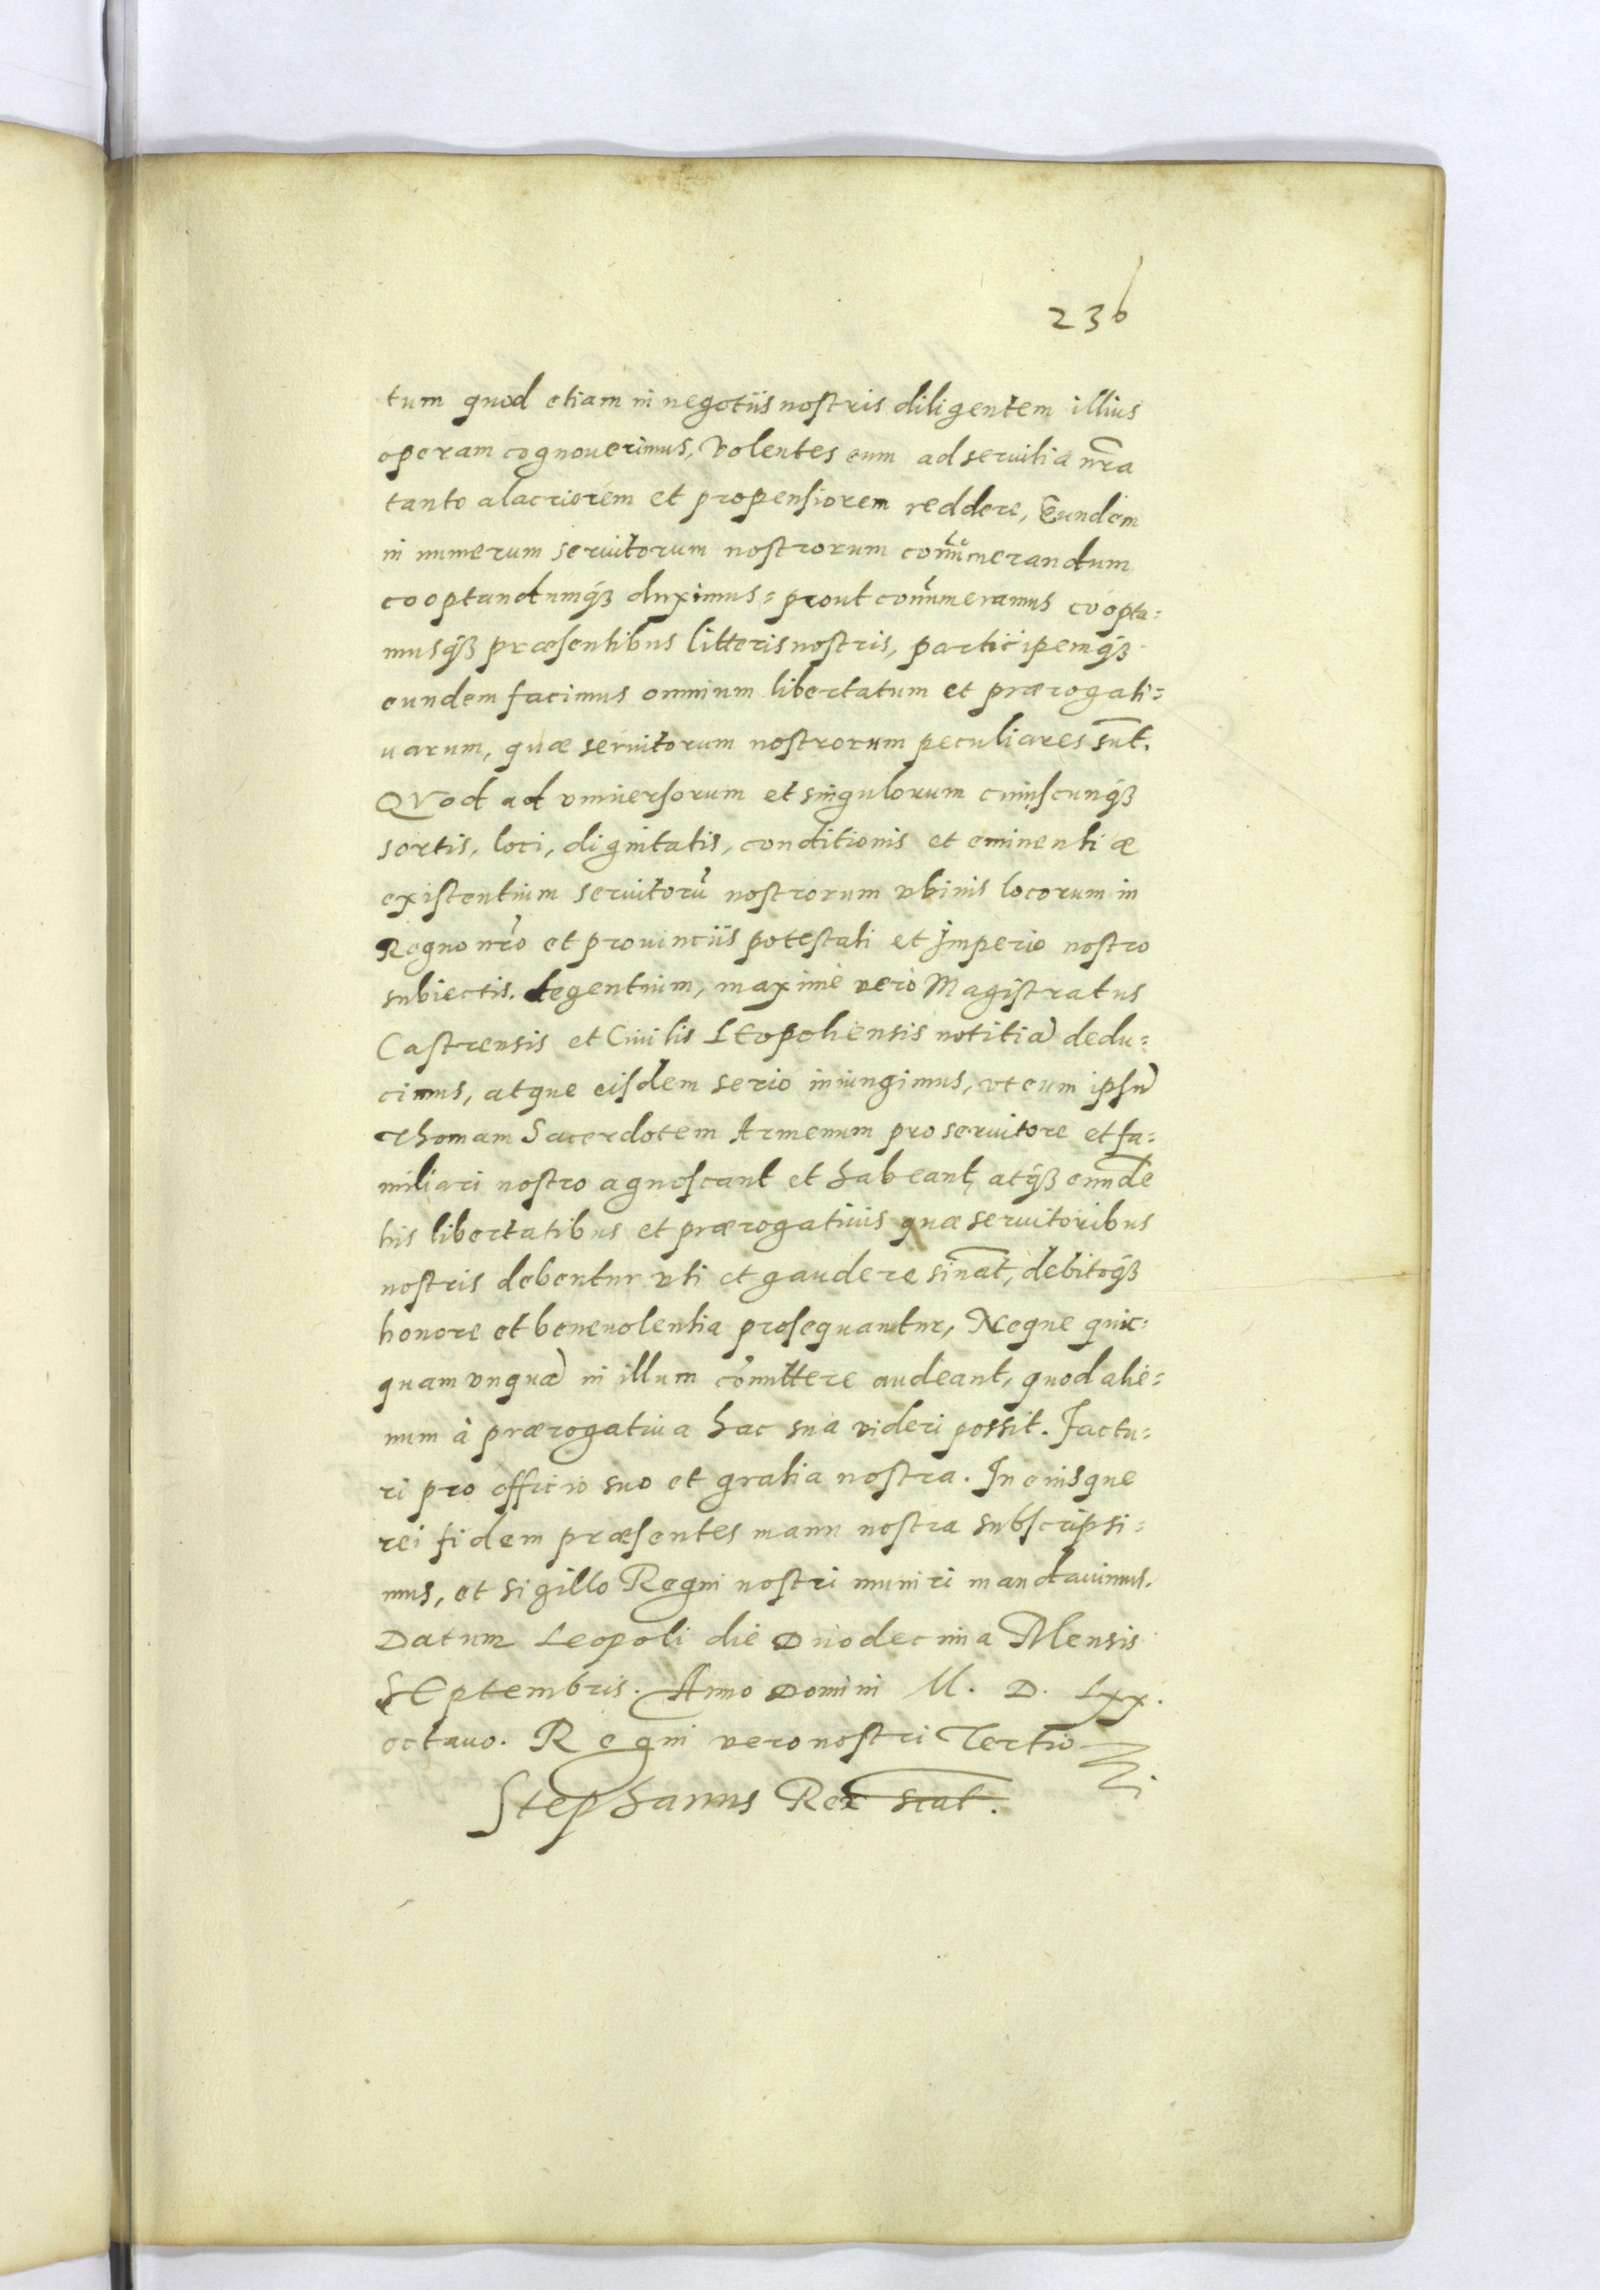 236
tum quod etiam in negotiis nostris diligentem illius
operam cognouerimus, Volentes eum ad seruitia nr̃a
tanto alacriorem et propensiorem reddere, Eundem
in numerum seruitorum nostrorum com̃umerandum
cooptandumq́ꝫ duximus = prout com̃umeramus coopta =
musq́ꝫ præsentibus litteris nostris, participemq́ꝫ
eundem facimus omnium libertatum et prærogati =
uarum, quæ seruitorum nostrorum peculiares sũt.
QVod ad vniuersorum et singulorum cuiuscunq́ꝫ
sortis, loci, dignitatis, conditionis et eminentiæ
existentium seruitorũ nostrorum vbiuis locorum in
Regno nr̃o et prouinciis potestati et Imperio nostro
subiectis. degentium, maximè verò Magistratus
Castrensis et Ciuilis LEopoliensis notitiã dedu =
cimus, atque eisdem serio iniungimus, vt eum ipsũ
Thomam Sacerdotem Armenum pro seruitore et fa =
miliari nostro agnoscant et habeant, atq́ꝫ eundẽ
his libertatibus et prærogatiuis quæ seruitoribus
nostris debentur vti et gaudere sinãt, debitoq́ꝫ
honore et beneuolentia prosequantur, Neque quic =
quam vnquã in illum com̃ittere audeant, quod alie =
num à prærogatiua hac sua videri possit. Factu =
ri pro officio suo et gratia nostra. In cuiusque
rei fidem præsentes manu nostra subscripsi =
mus, et sigillo Regni nostri muniri mandauimus.
Datum Leopoli die Duodecima Mensis
SEptembris. Anno Domini M. D. Lxx.
octauo. Regni vero nostri Tertio
Stephanus Rex